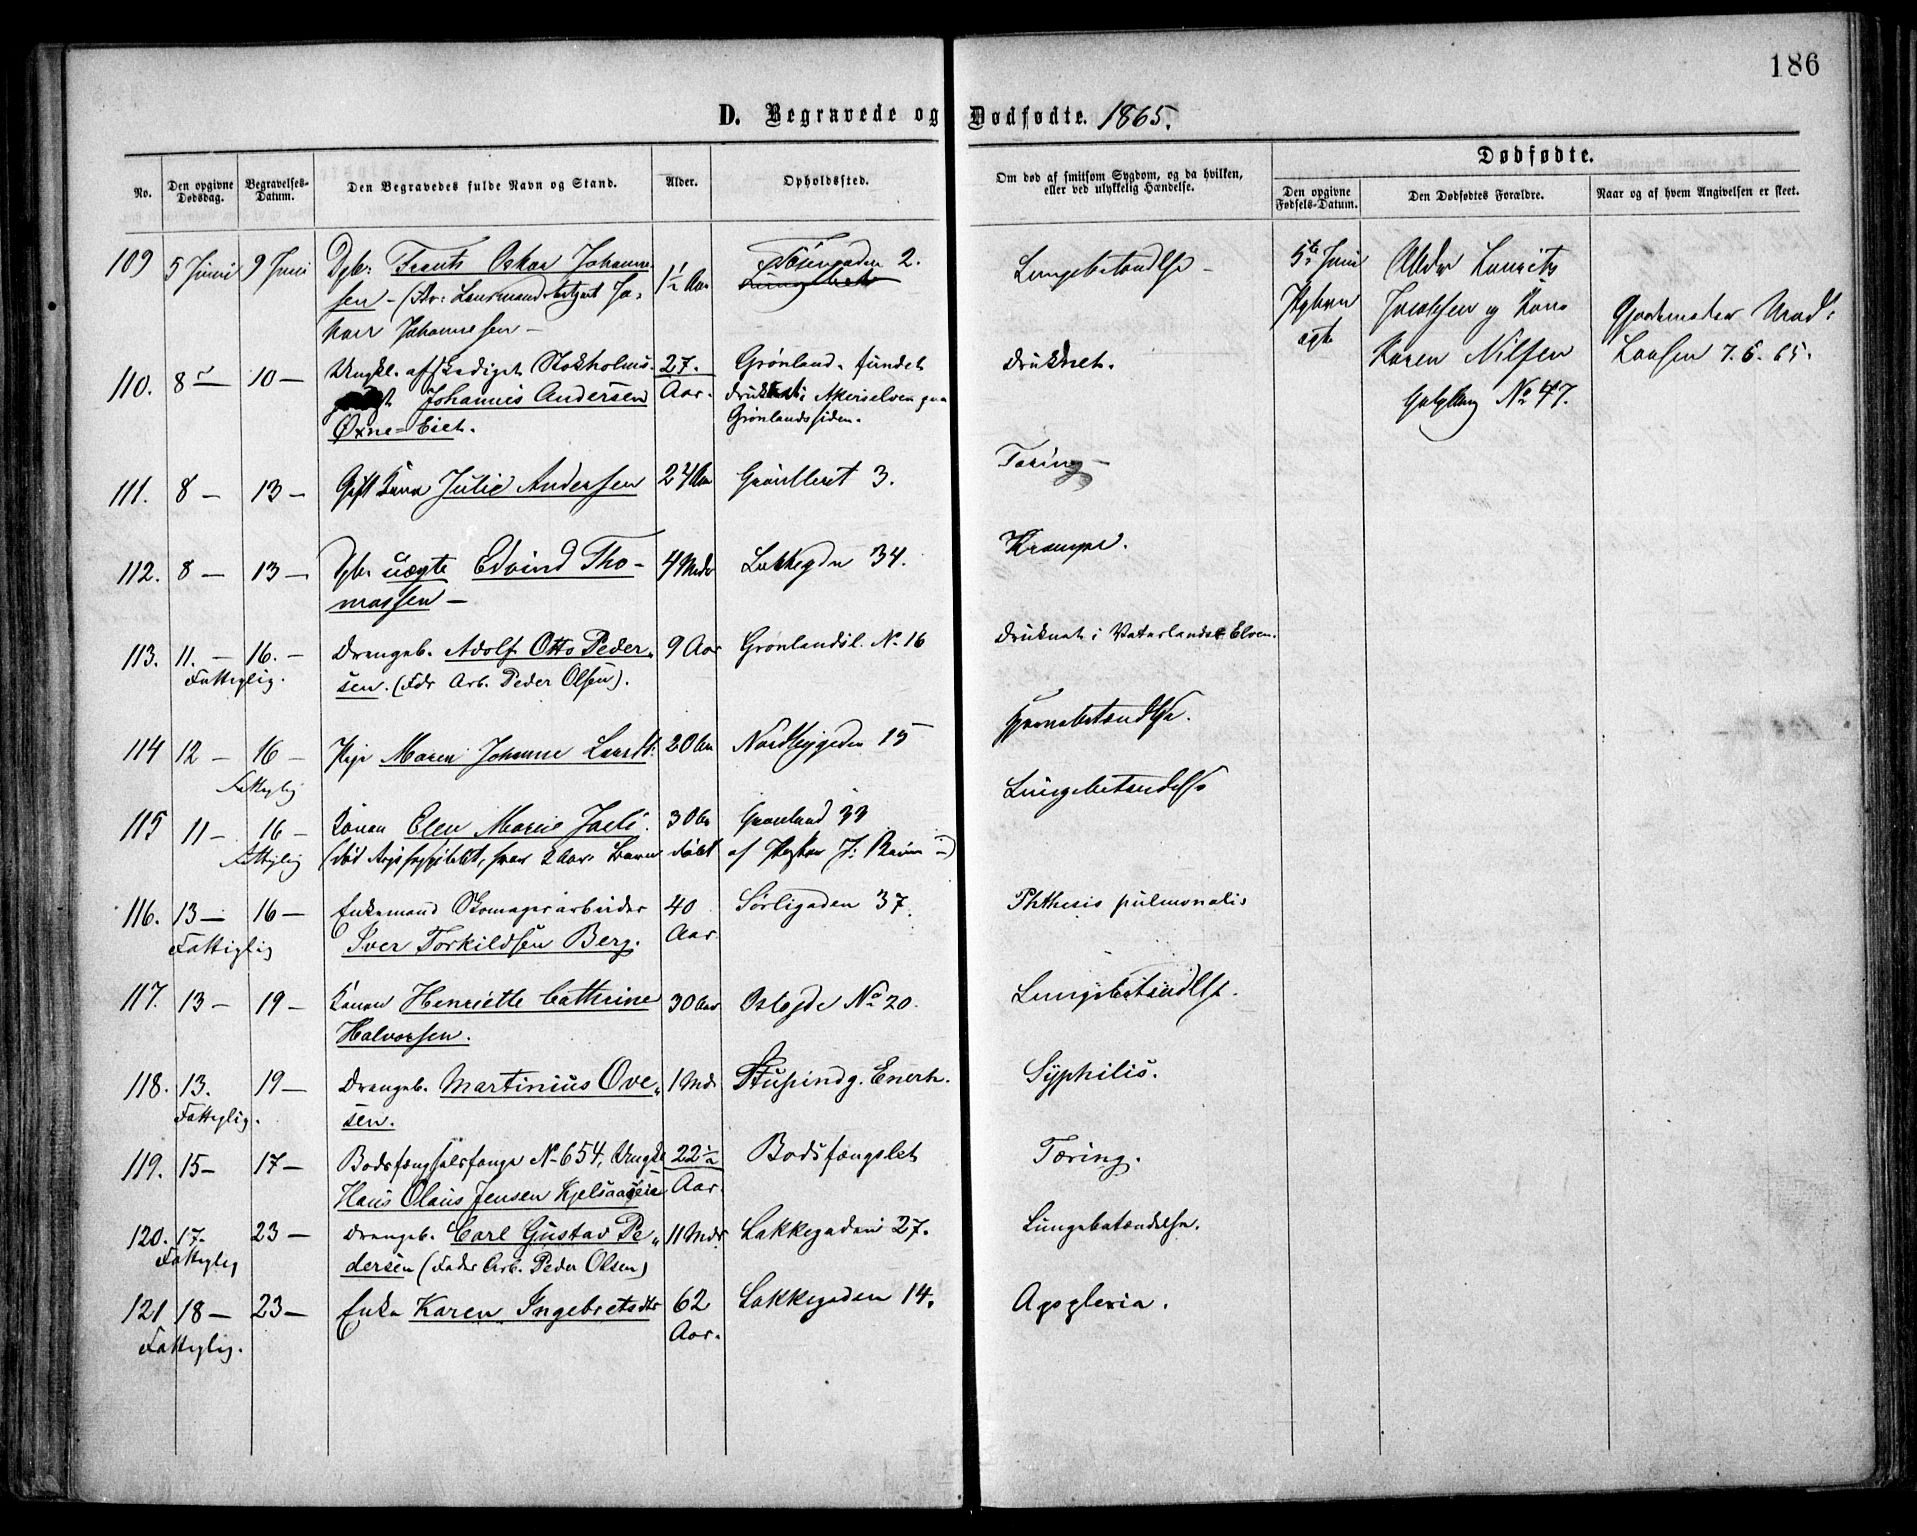 186
D. Begravede og Dødfødte. 1865.
No.
Den opgivne Dødsdag.
Begravelses-Datum.
Den Begravedes fulde Navn og Stand.
Alder.
Opholdssted.
Om død af smitsom Sygdom, og da hvilken, eller ved ulykkelig Hændelse.
Dødfødte.
Den opgivne Fødsels-Datum.
Den Dødfødtes Forældre.
Naar og af hvem Angivelsen er skeet.
109 5 Juni 9 Juni Dgbr. Frants Oskar Johanne- 1½ Aar 2. Lungebetændelse -
sen -
Johannesen -
5te Juni
Lauritz
Jacobsen og Kone
Karen Nilsen
No 47.
Gjordemoder Mad:
7.6.65.
110. 8 - 10 - Ungkl. afskediget Stokholms- 27. Grønland. fundet Druknet.
Johannes Andersen Aar. druknet i Akerselven paa
Øxne-Eiet. Grønlandssiden.
111. 8 - 13 - Gift Kone Julie Andersen 24 Aar Grønlleret 3. Tæring -
112. 8 - 13 - Dgbr. uægte Edvind Tho- 4 Mdr Lakkegden 34. Krampe.
massen -
113. 11. - 16. - Drengeb. Adolf Otto Peder- 9 Aar Grønlandsl. No 16 Druknet i Vaterlands Elven.
Fattiglig. sen. (Fdr Arb. Peder Olsen).
114 12 - 16 - Pige Maren Johanne Larsdt. 20 Aar Nordbygaden 15 Hjernebetændelse.
Fattiglig
115 11 - 16 - Konen Elen Marie 30 Aar Grønland 33 Lungebetændelse
Fattiglig
116. 13 - 16 - Enkemand Skomagerarbeider 40 Sørligaden 37. Phthesis pulmonalis
Fattiglig Iver Torkildsen Berg. Aar.
117. 13 - 19 - Konen Henriette Cathrine 30 Aar No 20. Lungebetændelse.
Halvorsen.
118. 13. 19 - Drengeb. Martinius Ove- 1 Md. Stupindg. Enerh. Syphilis.
Fattiglig. sen.
119. 15 - 17 - Bodsfængselsfange No 654, Ungkl 22½ Bodsfængslet Tæring.
Hans Olaus Jensen Kjelsaaseie Aar.
120. 17. 23 - Drengeb. Carl Gustav Pe- 11 Mdr Lakkegaden 27. Lungebetændelse.
Fattiglig dersen (Fader Arb. Peder Olsen)
121 18 - 23 - Enke Karen Ingebretsdtr 62 Lakkegaden 14. Apoplexia.
Fattiglig. Aar.